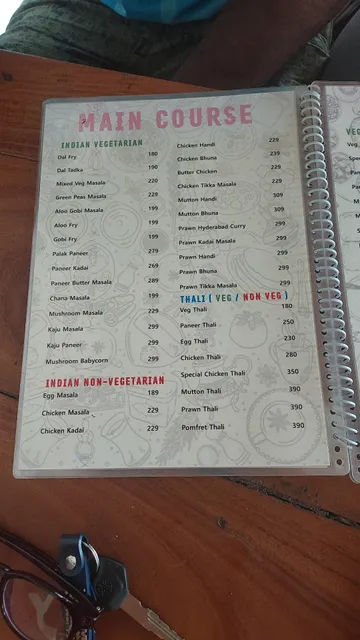 MAIN COURSE
INDIAN VEGETARIAN
Dal Fry 180
Dal Tadka 190
Mixed Veg Masala 220
Green Peas Masala 229
Aloo Gobi Masala 199
Aloo Fry 199
Gobi Fry 199
Palak Paneer 279
Paneer Kadai 269
Paneer Butter Masala 289
Chana Masala 199
Mushroom Masala 229
Kaju Masala 299
Kaju Paneer 299
Mushroom Babycorn 299
INDIAN NON-VEGETARIAN
Egg Masala 189
Chicken Masala 229
Chicken Kadai 229
Chicken Handi 229
Chicken Bhuna 239
Butter Chicken 229
Chicken Tikka Masala 229
Mutton Handi 309
Mutton Bhuna 309
Prawn Hyderabad Curry 299
Prawn Kadai Masala 299
Prawn Handi 299
Prawn Bhuna 299
Prawn Tikka Masala 299
THALI ( VEG / NON VEG )
Veg Thali 180
Paneer Thali 250
Egg Thali 230
Chicken Thali 280
Special Chicken Thali 350
Mutton Thali 390
Prawn Thali 390
Pomfret Thali 390